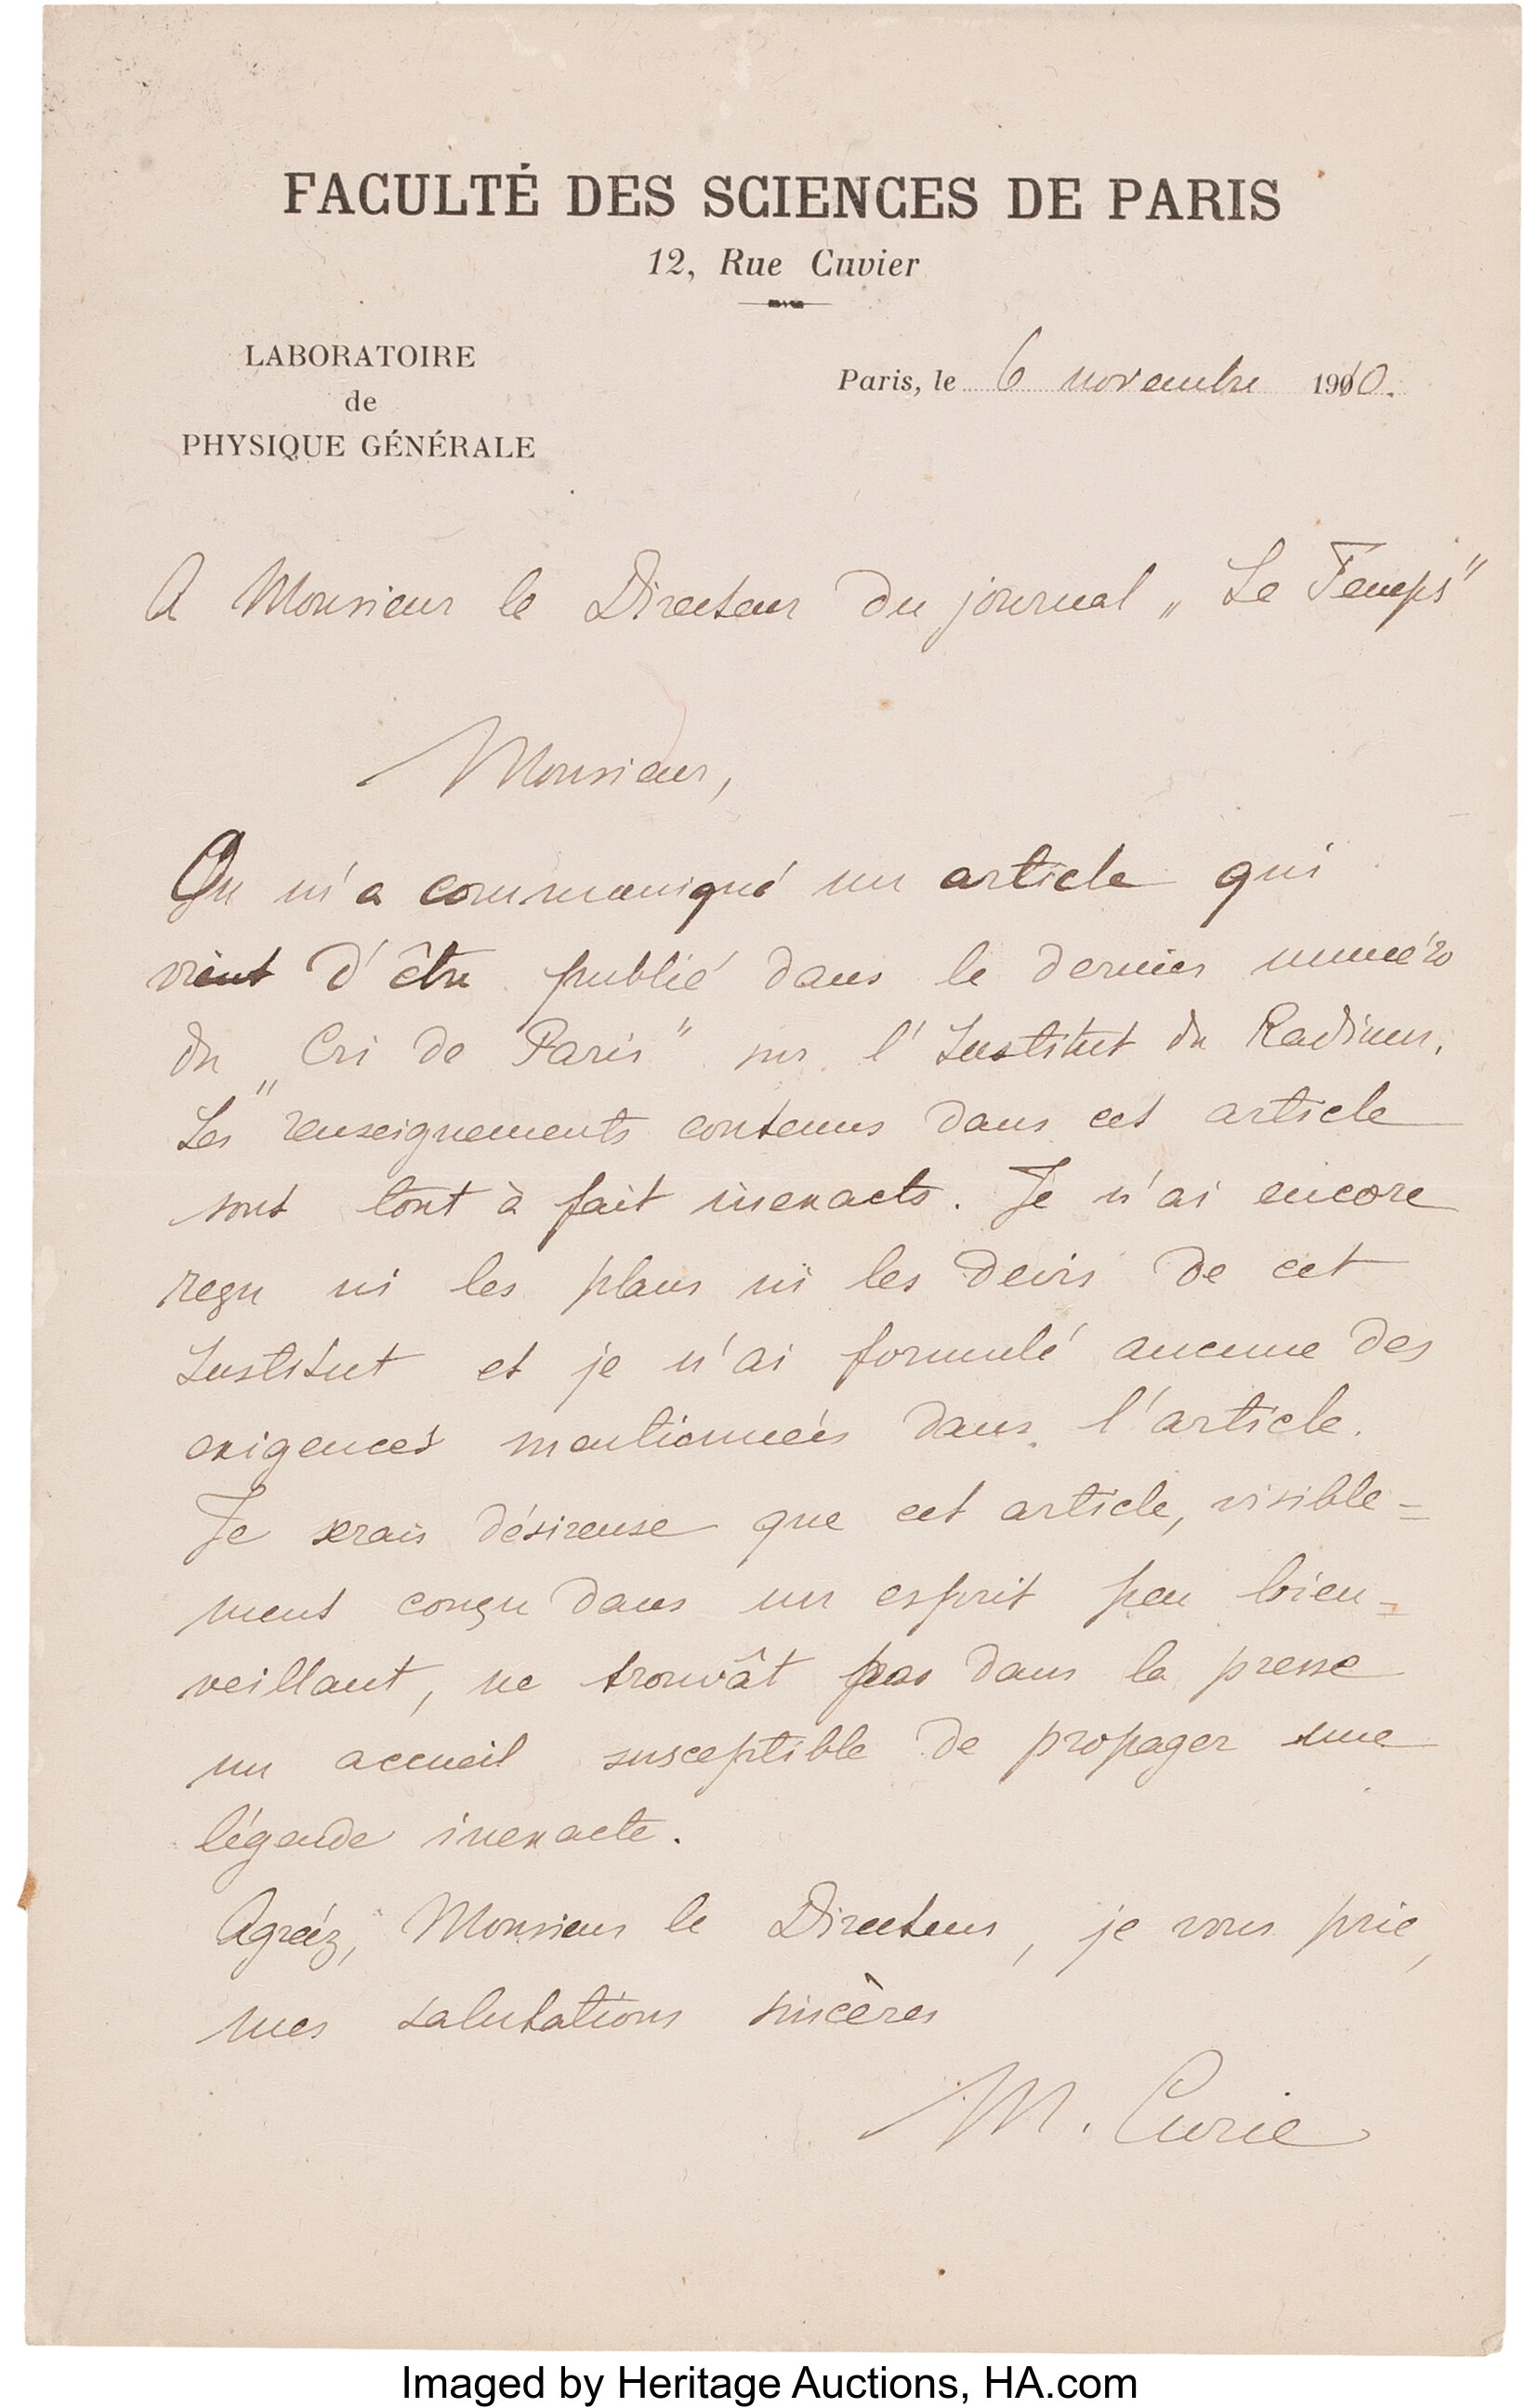 FACULTÉ DES SCIENCES DE PARIS
12, Rue Cuvier
LABORATOIRE
de
PHYSIQUE GÉNÉRALE
Paris, le 6 novembre 1910.
A Monsieur le Directeur du journal „ Le Temps"
Monsieur,
On m'a communiqué un article qui
vient d'être publié dans le dernier numéro
du „ Cri de Paris" sur l'Institut du Radium.
Les renseignements contenus dans cet article
sont tout à fait inexacts. Je n'ai encore
reçu ni les plans ni les devis de cet
Institut et je n'ai formulé aucune des
exigences mentionnées dans l'article.
Je serais désireuse que cet article, visible=
ment conçu dans un esprit peu bien=
veillant, ne trouvât pas dans la presse
un accueil susceptible de propager une
légende inexacte.
Agréez, Monsieur le Directeur, je vous prie,
mes salutations sincères
M. Curie
Imaged by Heritage Auctions, HA.com